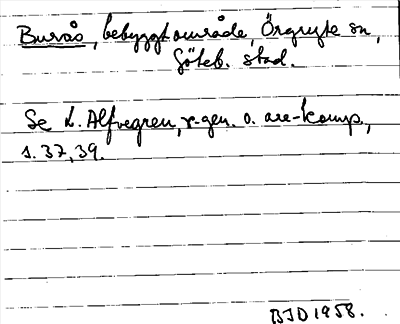 Burås, bebyggt område, Örgryte sn,
Göteb. stad.
Se L. Alfvegren, r-gen. o. are-komp.,
s. 37, 39.
BJD 1958.